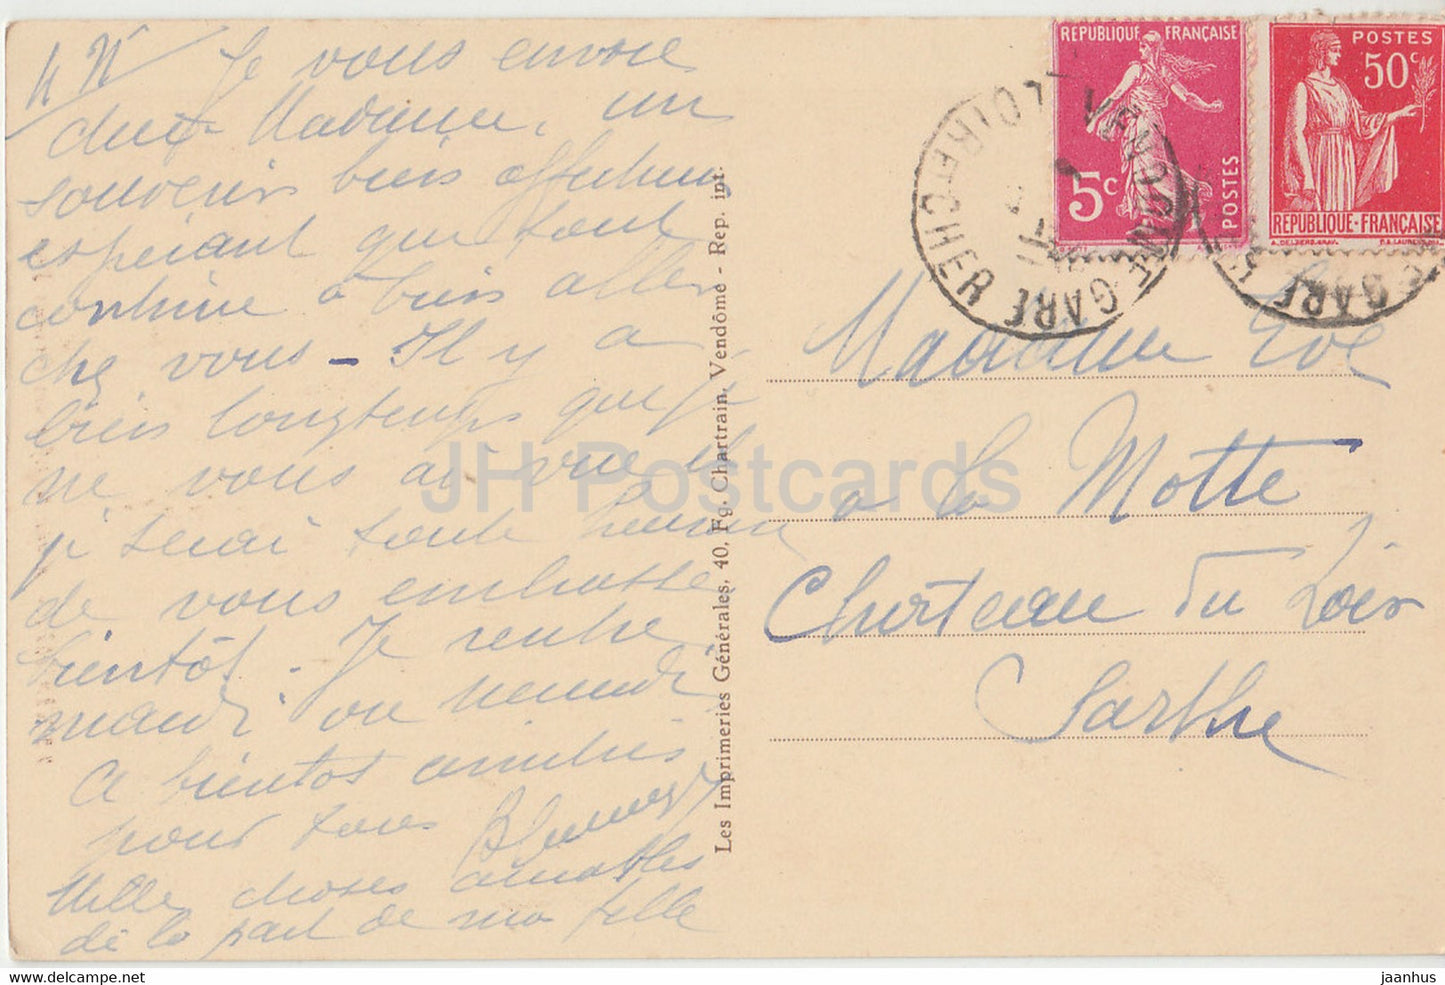 Je vous envoie
chère Madame, un
souvenir bien affectueux
espérant que tout
continue à bien aller
chez vous - Il y a
bien longtemps que je
ne vous ai vue
je serai toute heureuse
de vous embrasser
bientôt - Je rentre
mardi ou
A bientôt amitiés
pour tous
Mille choses aimables
de la part de ma fille
Les Imprimeries Générales, 40, Fg. Chartrain, Vendôme - Rep. int.
REPUBLIQUE FRANÇAISE
5c
POSTES
POSTES
50c
REPUBLIQUE-FRANÇAISE
VENDOME-GARE
LOIR ET CHER
GARE
Madame
a la Motte
Chateau du Loir
Sarthe
JH Postcards
www.delcampe.net
jaanhus